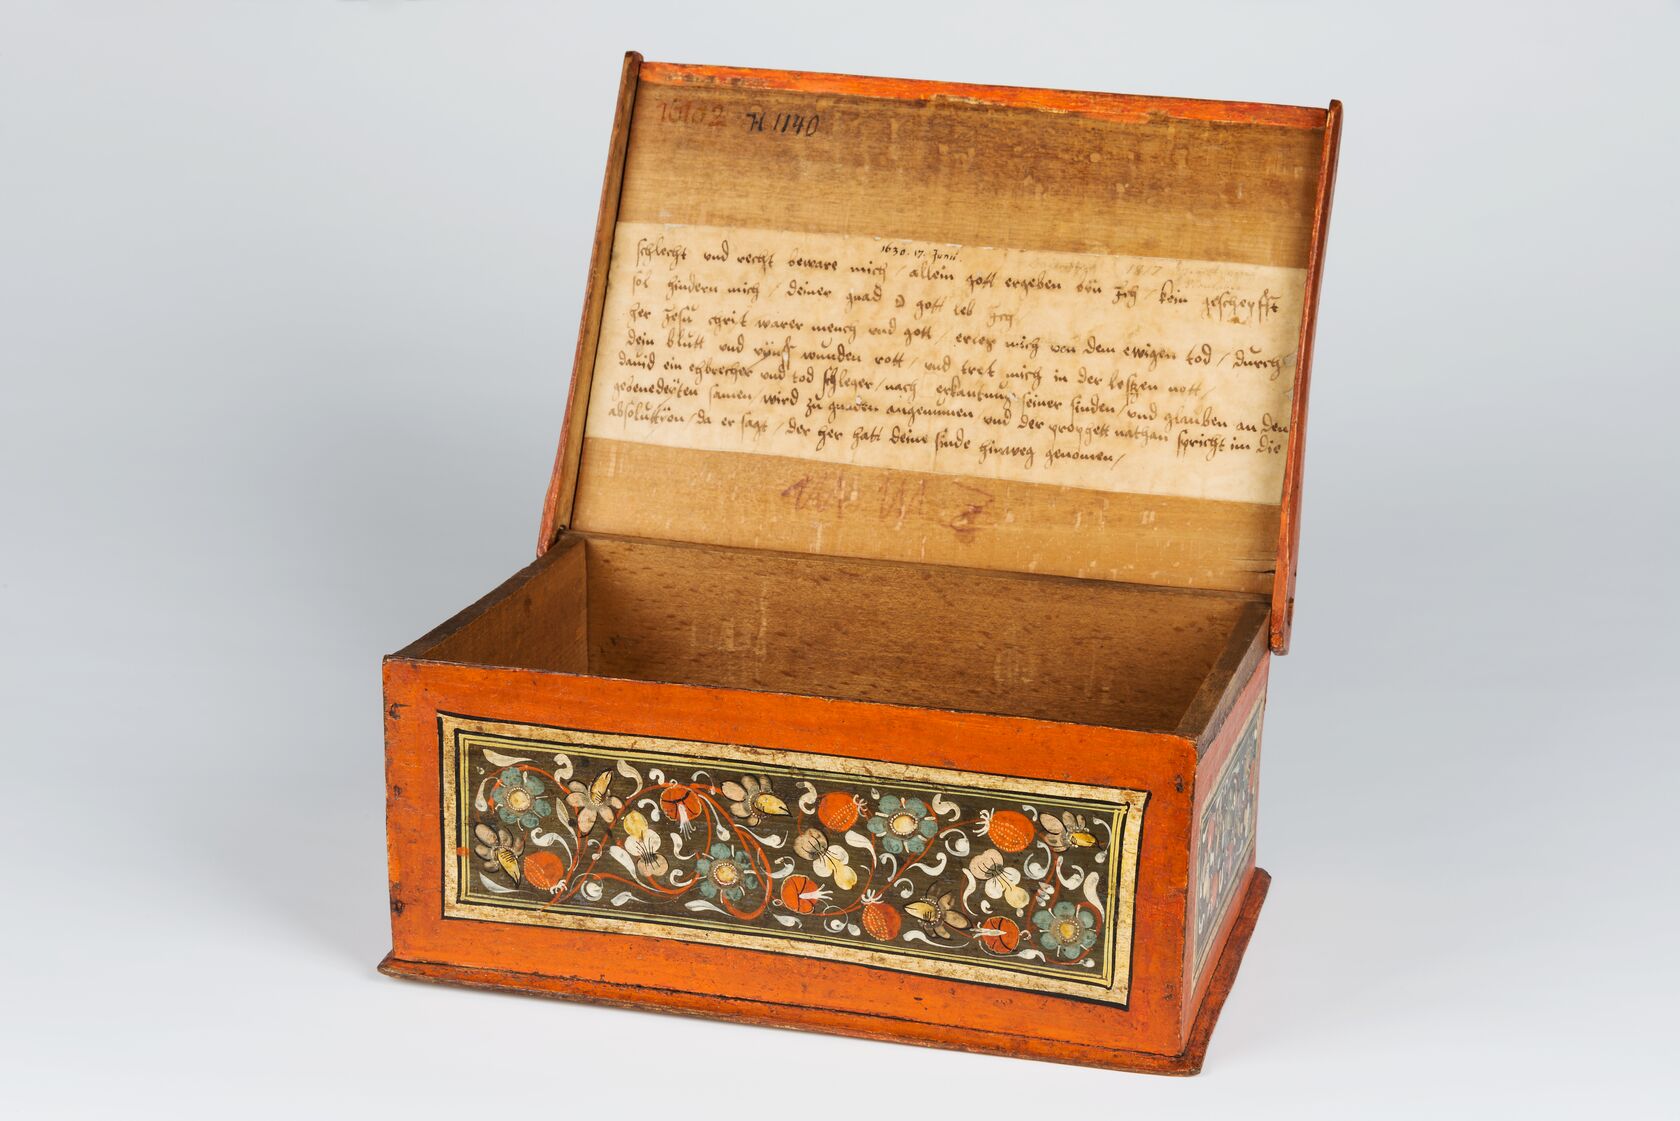 16102 H 1140
1630. 17. Junii.
schlecht und recht beware mich / allein gott ergeben bün Ich / kein gescheypfft
sol hindern mich / deiner gnad o gott leb Ich /
her Jesu christ warer mench und gott / erles mich von dem ewigen tod / durch
dein blutt und vünf wunden rott / und tret mich in der letzen nott /
dauid ein ehbrecher und tod schleger / nach erkantnus seiner sinden / und glauben an den
gebenedeÿten samen / wird zu gnaden angenummen und der prophett nathan spricht im die
absoluttÿon / da er sagt / der her hatt deine sinde hinweg genomen /